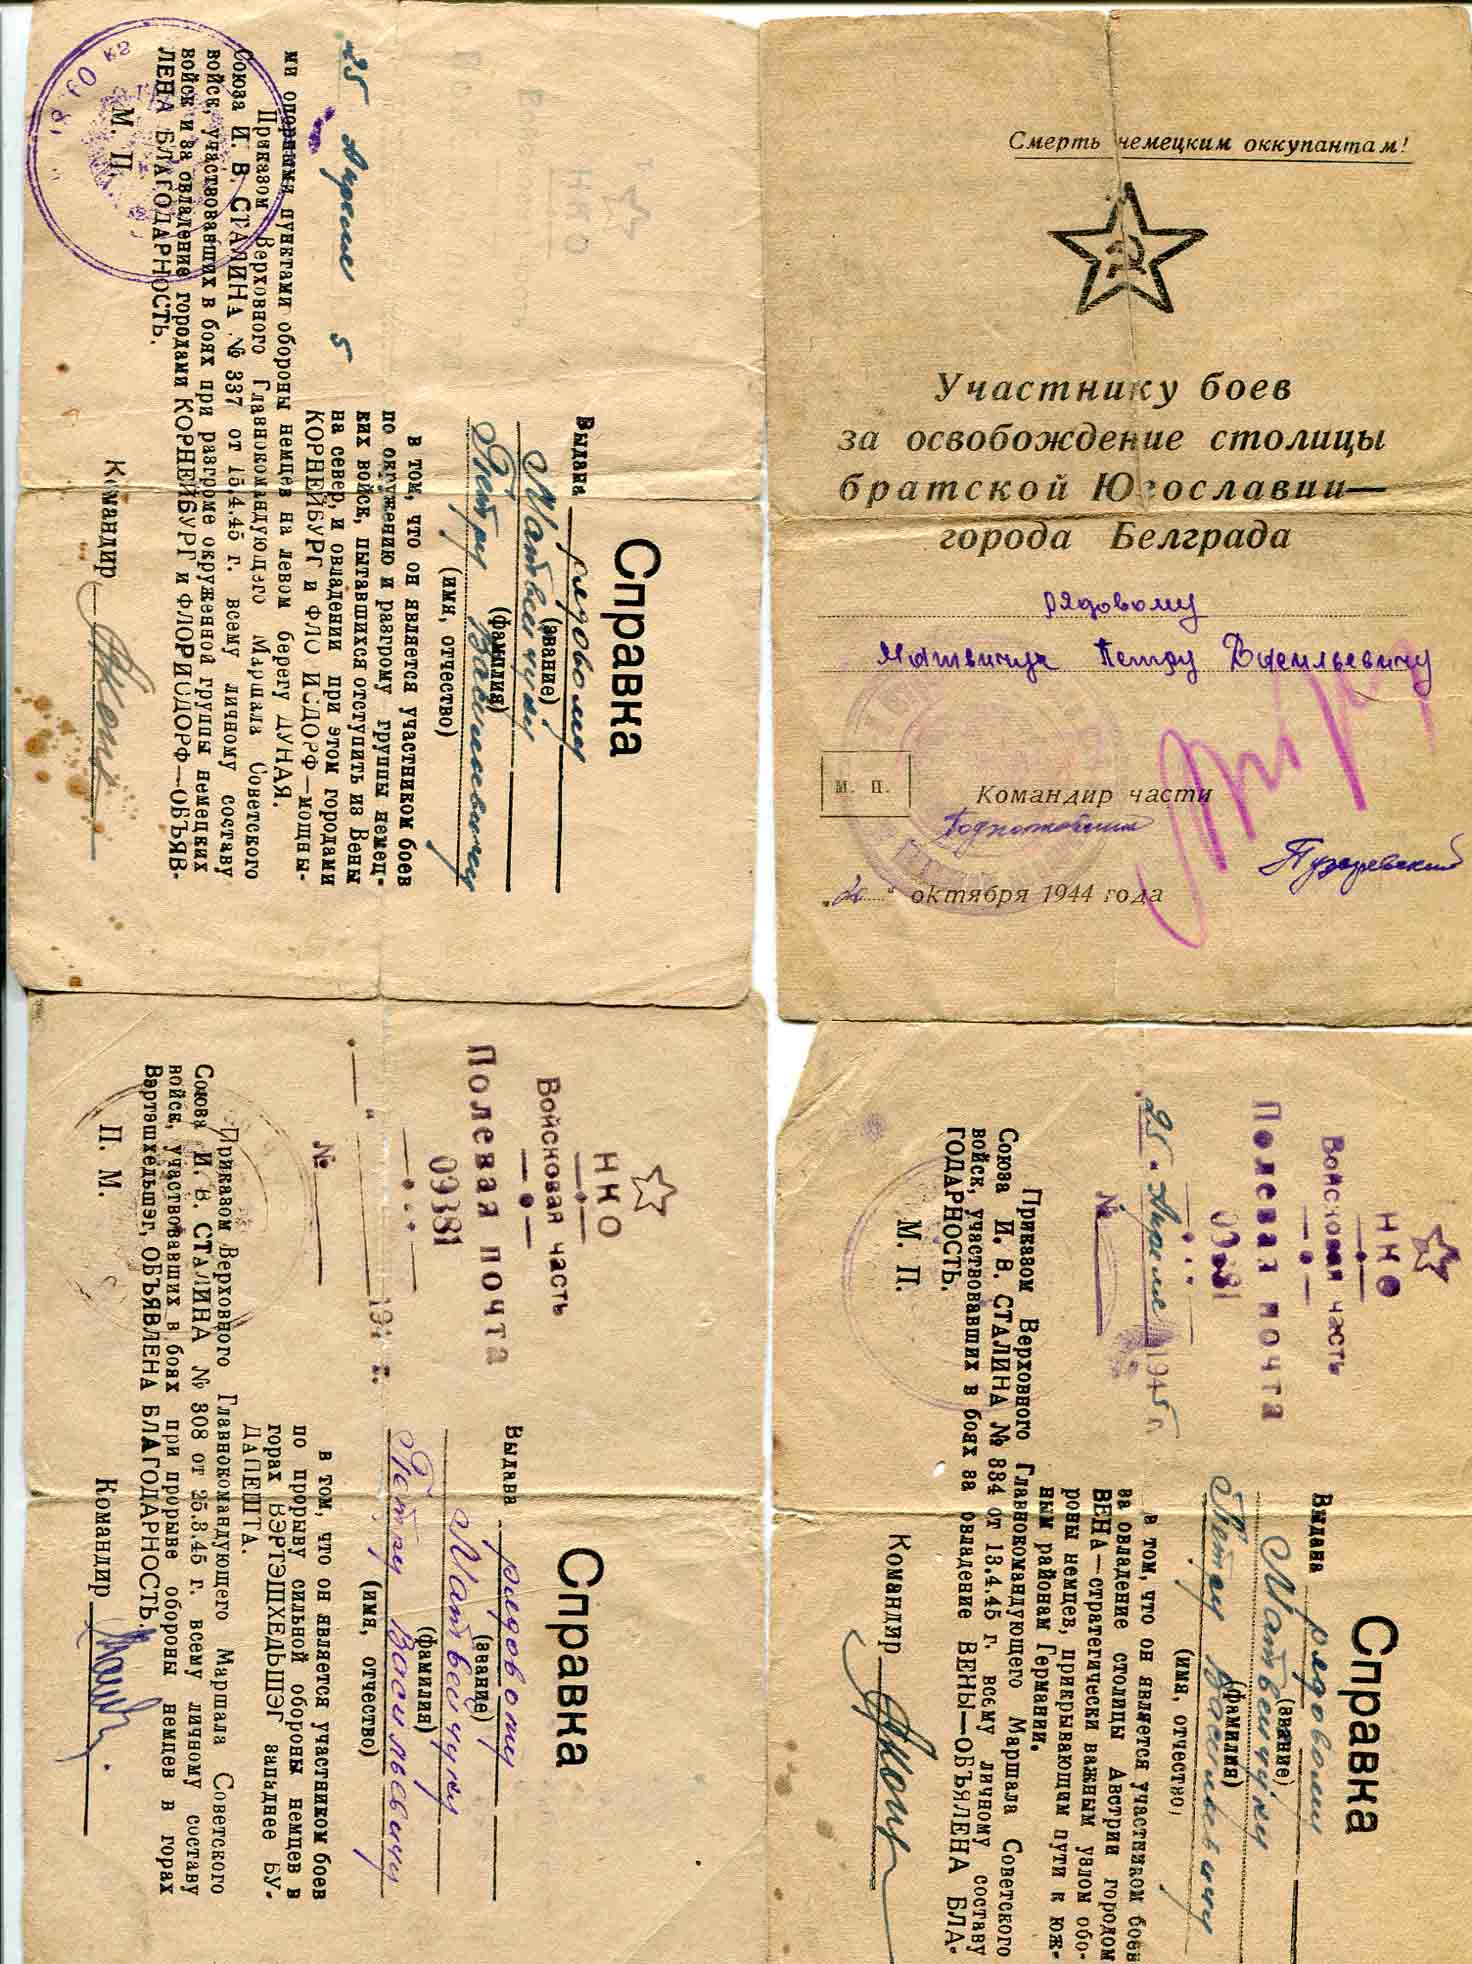 Смерть немецким оккупантам!
Участнику боев
за освобождение столицы
братской Югославии—
города Белграда
рядовому
Матвичук Петру Васильевичу
М. П.
Командир части
Подполковник
Пузеревский
октября 1944 года
Справка
Выдана рядовому
(звание)
Матвейчуку
(фамилия)
Петру Васильевичу
(имя, отчество)
в том, что он является участником боев
по окружению и разгрому группы немец-
ких войск, пытавшихся отступить из Вены
на север, и овладении при этом городами
КОРНЕЙБУРГ и ФЛОРИСДОРФ—мощны-
ми опорными пунктами обороны немцев на левом берегу ДУНАЯ.
Приказом Верховного Главнокомандующего Маршала Советского
Союза И. В. СТАЛИНА № 337 от 15.4.45 г. всему личному составу
войск, участвовавших в боях при разгроме окруженной группы немецких
войск и за овладение городами КОРНЕЙБУРГ и ФЛОРИСДОРФ—ОБЪЯВ-
ЛЕНА БЛАГОДАРНОСТЬ.
25 Апреля 5
М. П.
Командир
НКО
Войсковая часть
Полевая почта
09381
194 г.
№
Справка
Выдана рядовому
(звание)
Матвейчуку
(фамилия)
Петру Васильевичу
(имя, отчество)
в том, что он является участником боев
по прорыву сильной обороны немцев в
горах ВЭРТЭШХЕДЬШЭГ западнее БУ-
ДАПЕШТА.
Приказом Верховного Главнокомандующего Маршала Советского
Союза И. В. СТАЛИНА № 308 от 25.3.45 г. всему личному составу
войск, участвовавших в боях при прорыве обороны немцев в горах
Вэртэшхедьшэг, ОБЪЯВЛЕНА БЛАГОДАРНОСТЬ.
П. М.
Командир
НКО
Войсковая часть
Полевая почта
09381
25 Апреля 1945 г.
№
Справка
Выдана рядовому
(звание)
Матвейчуку
(фамилия)
Петру Васильевичу
(имя, отчество)
в том, что он является участником боев
за овладение столицы Австрии городом
ВЕНА—стратегически важным узлом обо-
роны немцев, прикрывающим пути к юж-
ным районам Германии.
Приказом Верховного Главнокомандующего Маршала Советского
Союза И. В. СТАЛИНА № 334 от 13.4.45 г. всему личному составу
войск, участвовавших в боях за овладение ВЕНЫ—ОБЪЯЛЕНА БЛА-
ГОДАРНОСТЬ.
М. П.
Командир